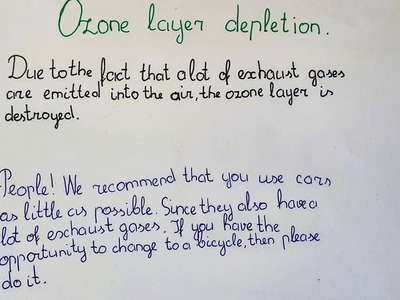 Ozone layer depletion.
Due to the fact that a lot of exhaust gases
are emitted into the air, the ozone layer is
destroyed.
People! We recommend that you use cars
as little as possible. Since they also have a
lot of exchaust gases. If you have the
opportunity to change to a bicycle, then please
do it.